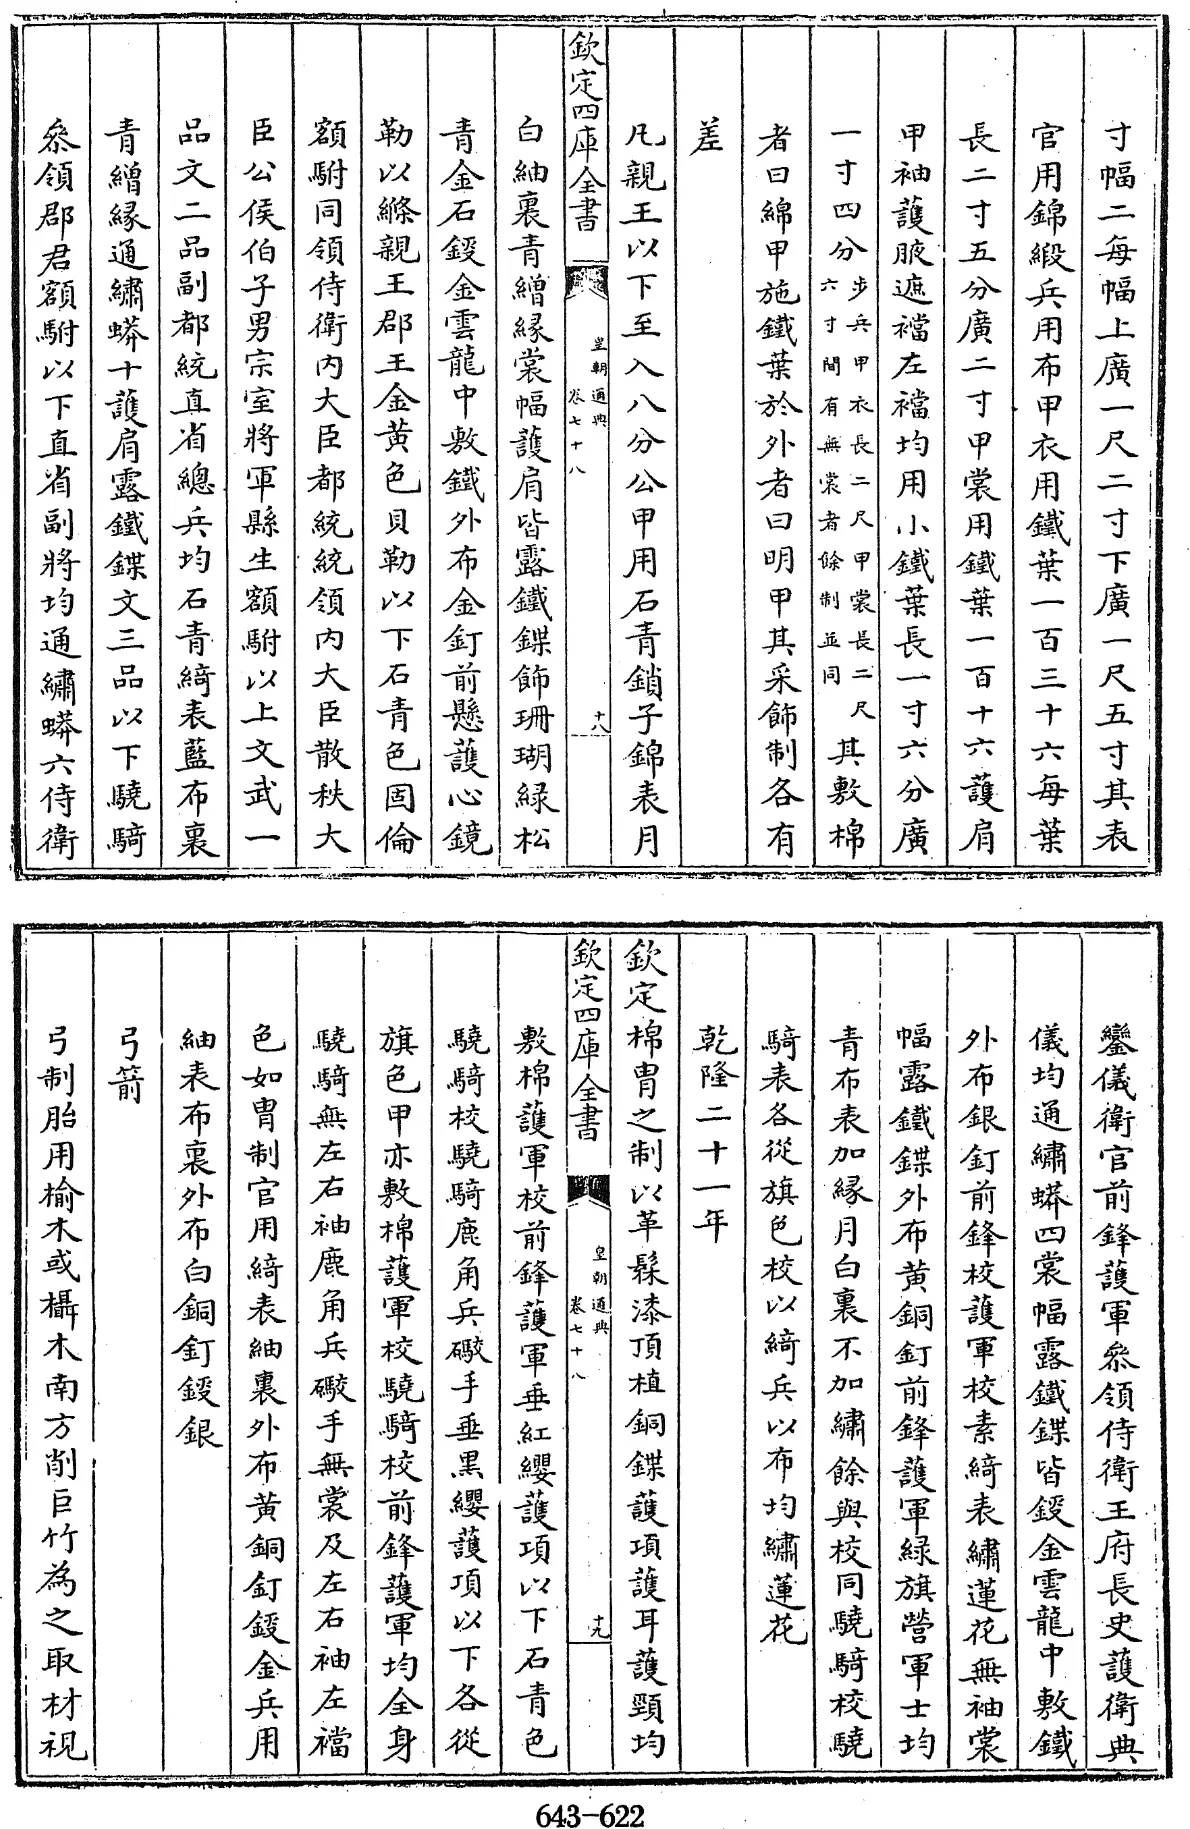 寸幅二每幅上廣一尺二寸下廣一尺五寸其表
官用錦緞兵用布甲衣用鐵葉一百三十六每葉
長二寸五分廣二寸甲裳用鐵葉一百十六護肩
甲袖護腋遮襠左襠均用小鐵葉長一寸六分廣
一寸四分步兵甲衣長二尺甲裳長二尺六寸間有無裳者餘制並同其敷棉
者曰綿甲施鐵葉於外者曰明甲其采飾制各有
差
凡親王以下至入八分公甲用石青鎖子錦表月
欽定四庫全書 皇朝通典 卷七十八 十八
白紬裏青繒緣裳幅護肩皆露鐵鍱飾珊瑚綠松
青金石鋄金雲龍中敷鐵外布金釘前懸護心鏡
勒以縧親王郡王金黄色貝勒以下石青色固倫
額駙同領侍衛内大臣都統統領内大臣散秩大
臣公侯伯子男宗室將軍縣主額駙以上文武一
品文二品副都統直省總兵均石青綺表藍布裏
青繒緣通繡蟒十護肩露鐵鍱文三品以下驍騎
叅領郡君額駙以下直省副將均通繡蟒六侍衛
鑾儀衛官前鋒護軍叅領侍衛王府長史護衛典
儀均通繡蟒四裳幅露鐵鍱皆鋄金雲龍中敷鐵
外布銀釘前鋒校護軍校素綺表繡蓮花無袖裳
幅露鐵鍱外布黄銅釘前鋒護軍緑旗營軍士均
青布表加緣月白裏不加繡餘與校同驍騎校驍
騎表各從旗色校以綺兵以布均繡蓮花
乾隆二十一年
欽定棉冑之制以革髹漆頂植銅鍱護項護耳護頸均
欽定四庫全書 皇朝通典 卷七十八 十九
敷棉護軍校前鋒護軍垂紅纓護項以下石青色
驍騎校驍騎鹿角兵礮手垂黒纓護項以下各從
旗色甲亦敷棉護軍校驍騎校前鋒護軍均全身
驍騎無左右袖鹿角兵礮手無裳及左右袖左襠
色如冑制官用綺表紬裏外布黄銅釘鋄金兵用
紬表布裏外布白銅釘鋄銀
弓箭
弓制胎用榆木或欇木南方削巨竹為之取材視
643-622